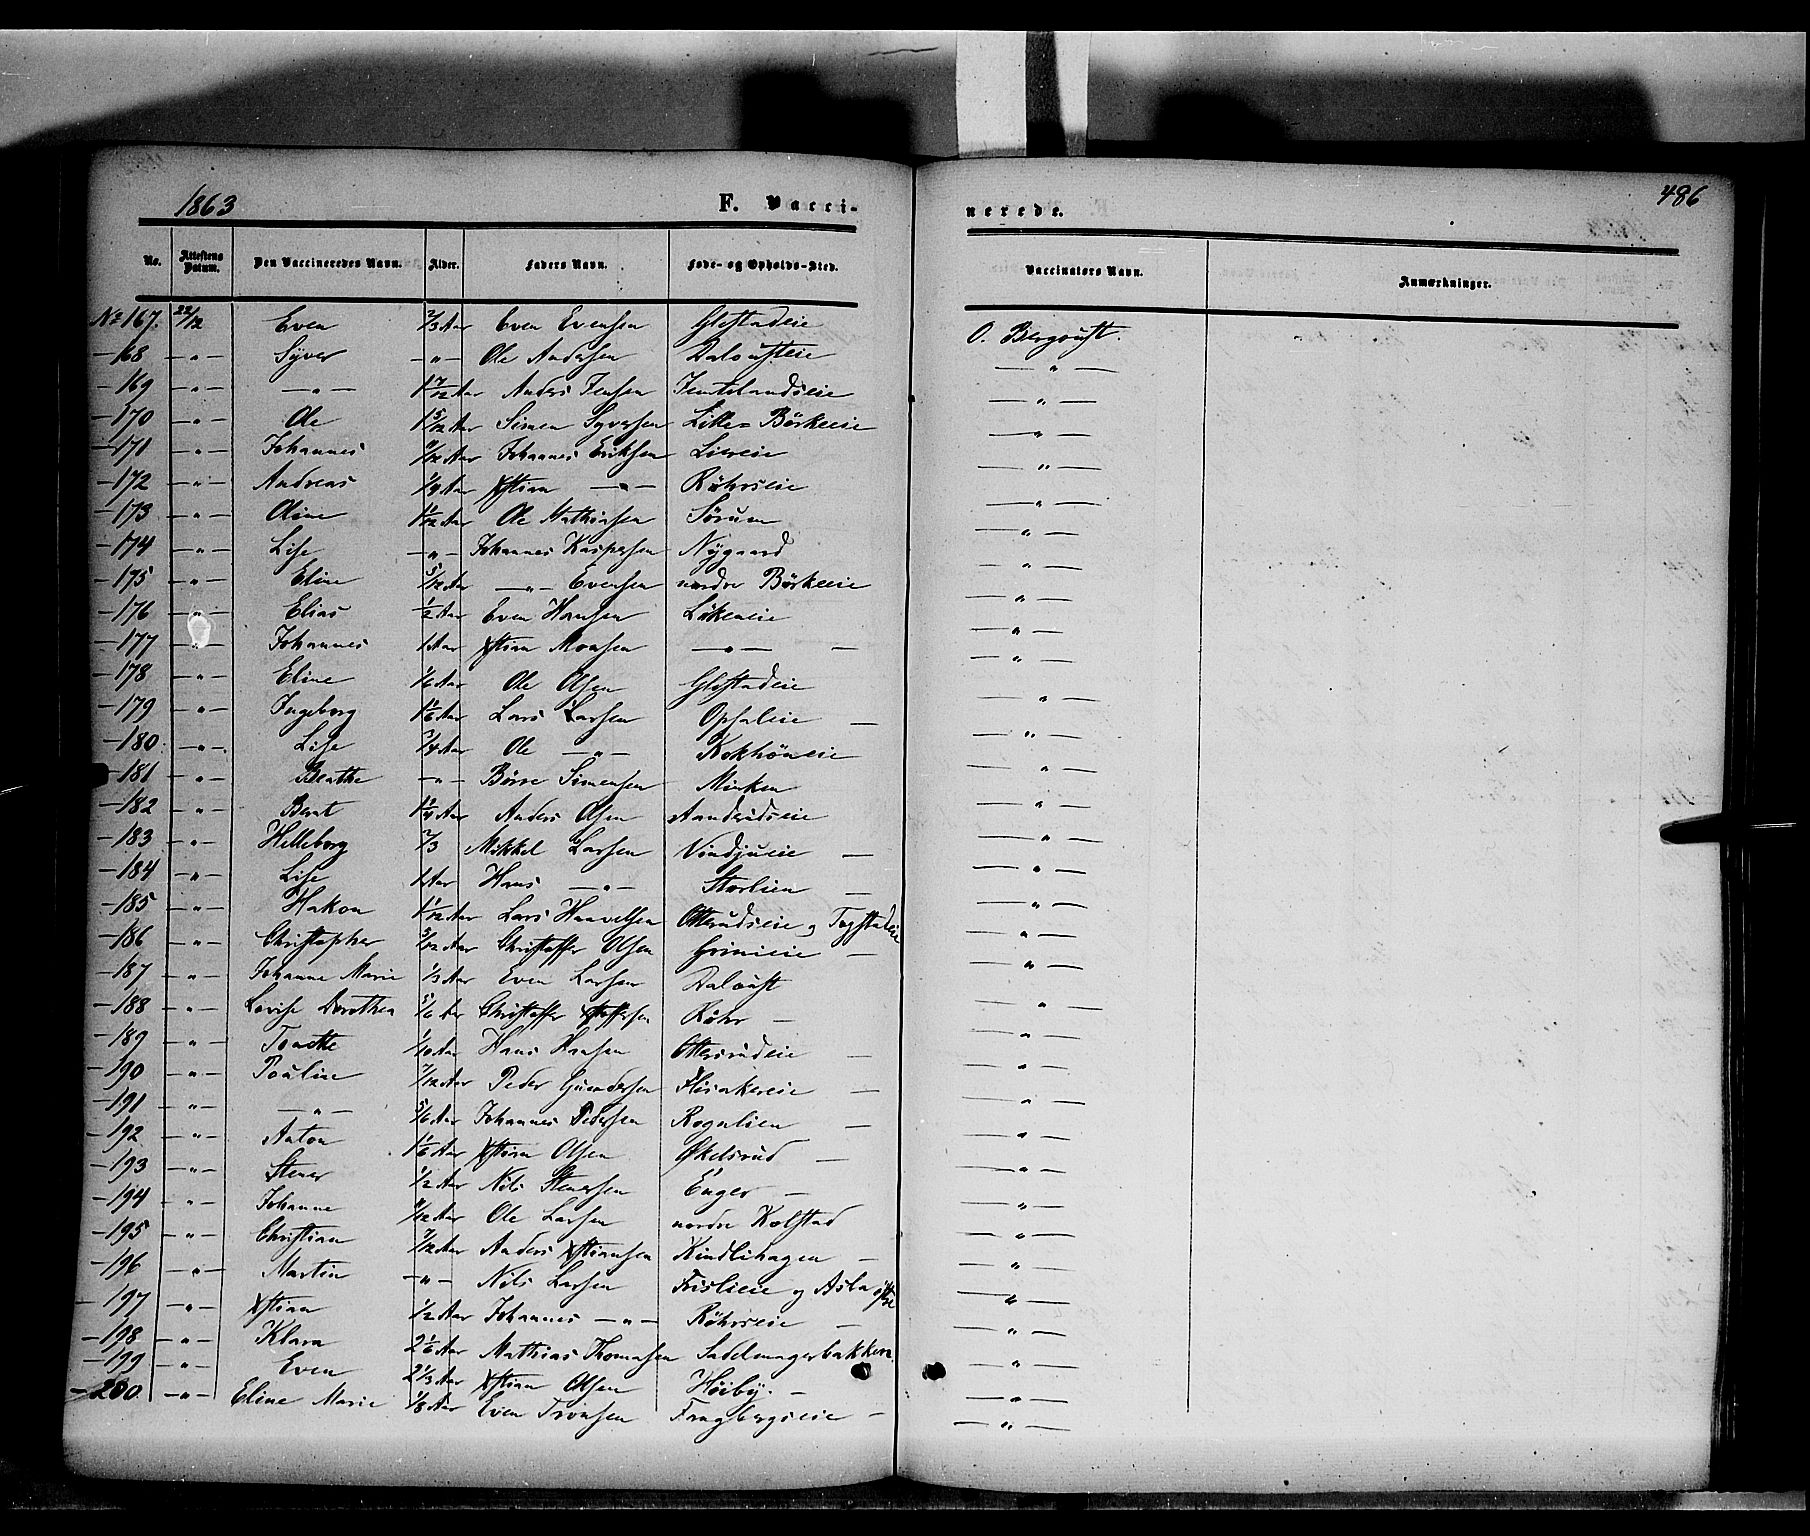 1863 F. Vacci- nerede. 486
No. Attestens Datum. Den Vaccineredes Navn. Alder. Faders Navn. Føde- og Opholds-Sted. Vaccinatørs Navn. Anmærkninger.
No 167. 22/12 Even 2/3 Aar Even Evensen Glestadeie O. Bergoust.
—168 —"— Syver —"— Ole Andersen Dalousteie —"—
—169 —"— —"— 1 7/12 Aar Anders Jensen —"—
—170 —"— Ole 1 5/12 Aar Simen Syversen Lille= Börkeeie —"—
—171 —"— Johannes Aar Johannes Eriksen Liereie —"—
—172 —"— Andreas 1/4 Aar Xstian —"— Röhrseie —"—
—173 —"— Oline 1 1/12 Aar Ole Mathiasen Sörum —"—
—174 —"— Lise —"— Johannes Kaspersen Nygaard —"—
—175 —"— Eline 5/12 Aar —"— Evensen nordre Börkeeie —"—
—176 —"— Elias 1/2 Aar Even Hansen Lökeneie —"—
—177 —"— Johannes 1 Aar Xstian Monsen —"— — —"—
—178 —"— Eline 1/6 Aar Ole Olsen Glestadeie —"—
—179 —"— Ingeborg 1 1/6 Aar Lars Larsen Opsaleie — —"—
—180. —"— Lise 3/4 Aar Ole —"— —"—
—181 —"— Beathe —"— Börre Simensen —"—
—182 —"— Berit 1 1/4 Aar Anders Olsen Aandrudseie —"—
—183 —"— Helleborg 2/3 Mikkel Larsen Vindjueie — —"—
—184 —"— Lise 1 Aar Hans —"— Storlien — —"—
—185 —"— Hakon 1 1/12 Aar Lars Haavelsen Otterudseie og Togstadeie —"—
—186 —"— Christopher 5/12 Aar Christoffer Olsen Grimeie — —"—
—187 —"— Johanne Marie 1/3 Aar Even Larsen Daloust —"—
—188 —"— Lovise Dorothea 5/6 Aar Christoffer Xstoffersen Röhr — —"—
—189 —"— Tonette 1/10 Aar Hans Hansen Ottersrudeie — —"—
—190 —"— Pouline 7/12 Aar Peder Gundersen Flisakereie — —"—
—191 —"— —"— 5/6 Aar Johannes Pedersen Rognlien — —"—
—192 —"— Anton 1 1/6 Aar Xstian Olsen Økelsrud — —"—
—193 —"— Stener 1/2 Aar Nils Stenersen Enger — —"—
—194 —"— Johanne Aar Ole Larsen nordre Kolstad —"—
—195 —"— Christian 7/12 Aar Anders Xstiansen Kindlihagen — —"—
—196 —"— Martin —"— Nils Larsen Frislieie og —"—
—197 —"— Xstian 1/2 Aar Johannes —"— Röhrseie — —"—
—198 —"— Klara 2 1/6 Aar Mathias Thomasen Sadelmagerbakken. —"—
—199 —"— Even 2 1/3 Aar Xstian Olsen Höiby. — —"—
—200. —"— Eline Marie 1/8 Aar Even Tronsen Fragbergseie — —"—